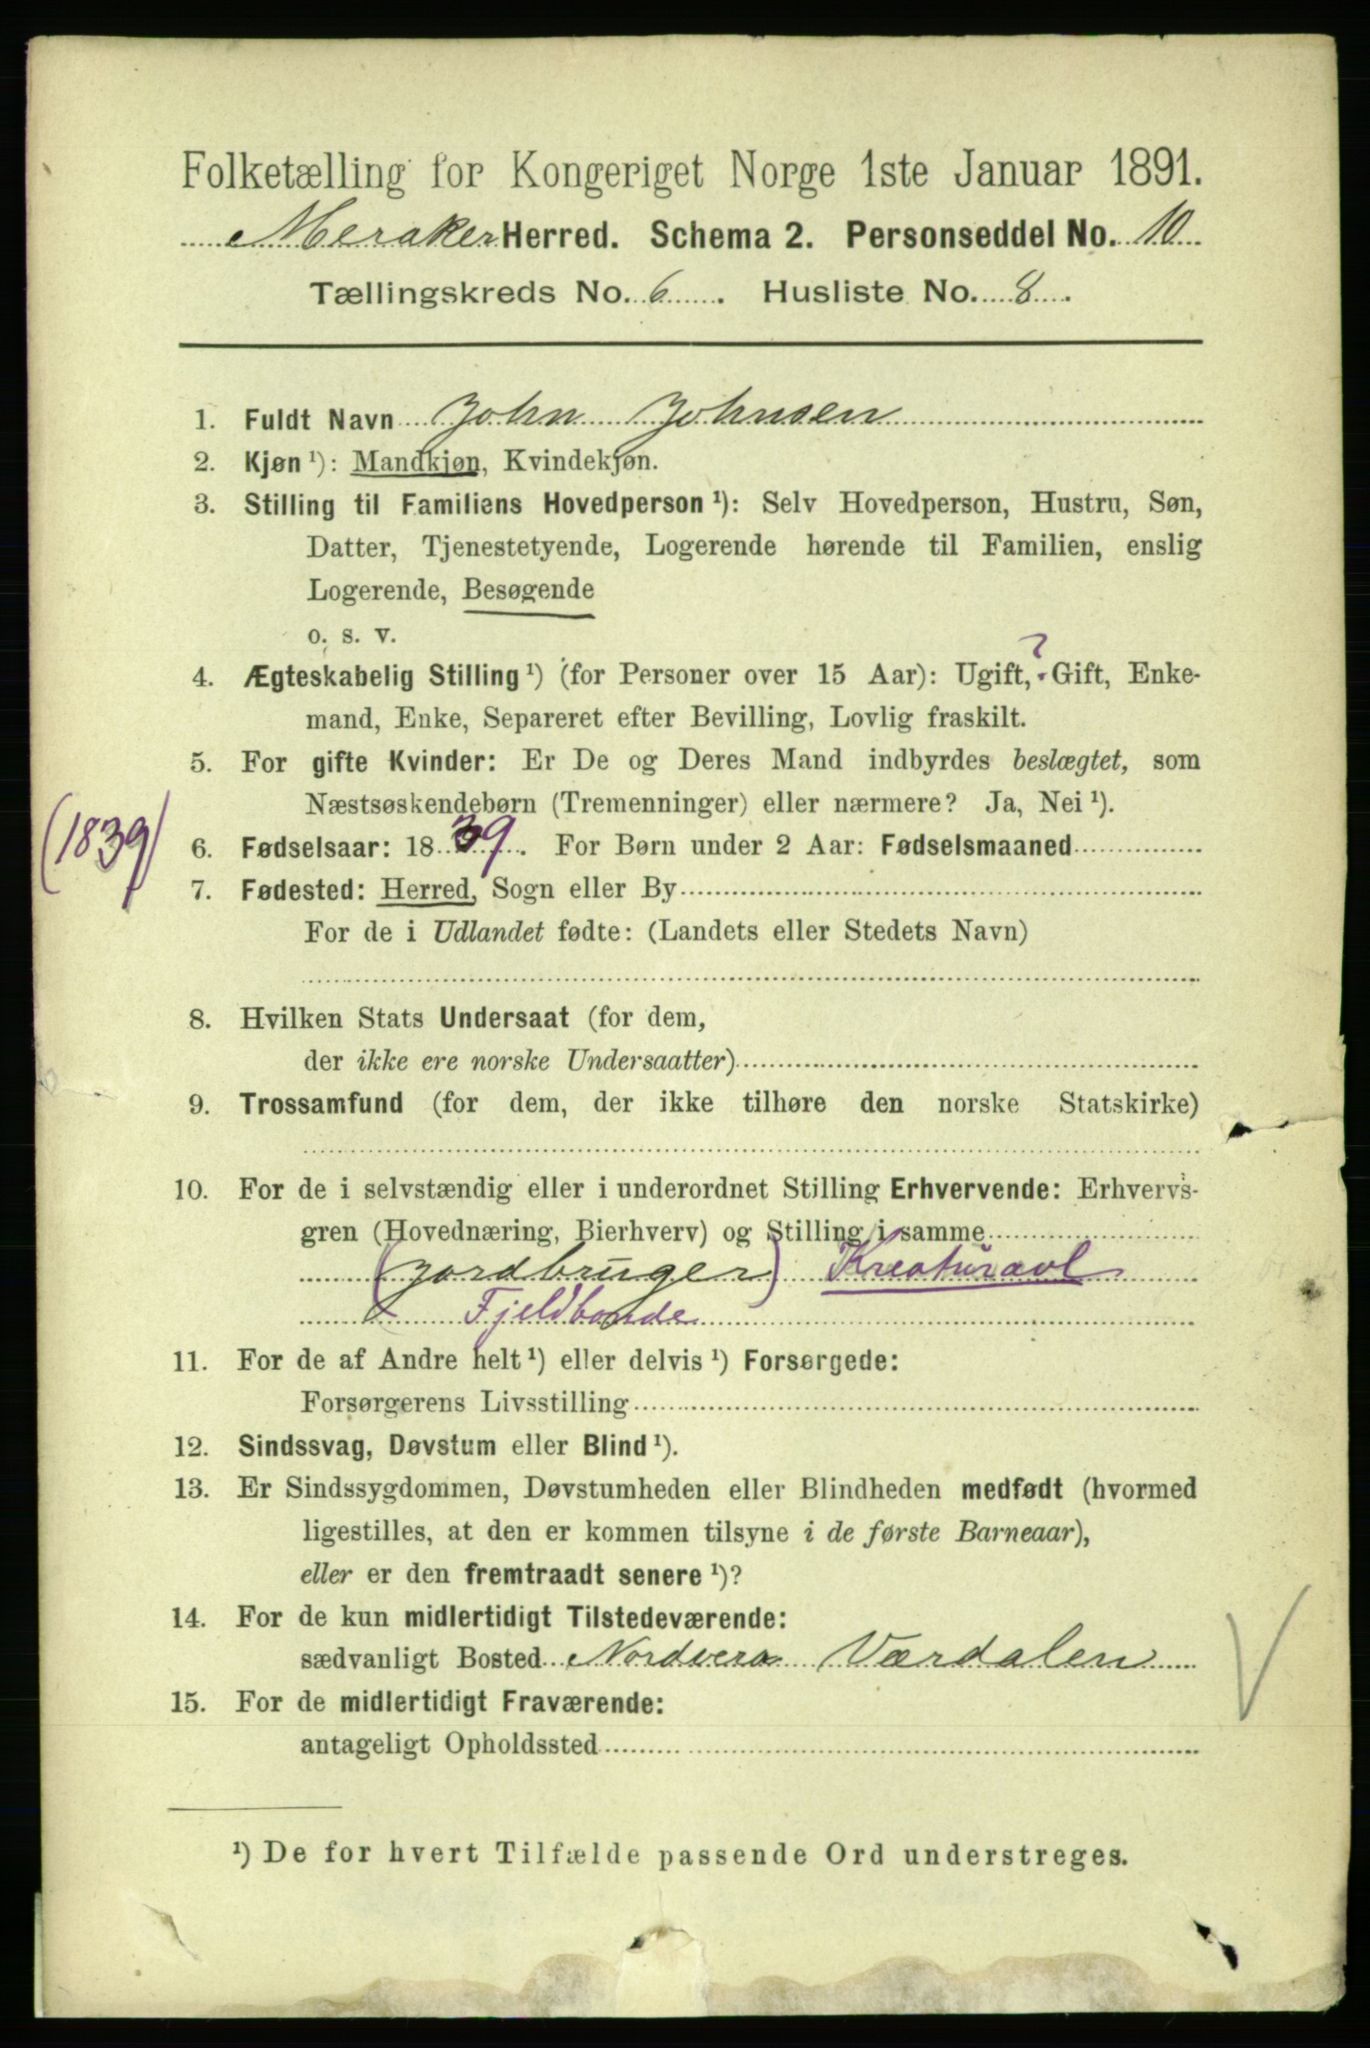 Folketælling for Kongeriget Norge 1ste Januar 1891.
Meraker Herred. Schema 2. Personseddel No. 10
Tællingskreds No. 6. Husliste No. 8.
1. Fuldt Navn John Johnsen
2. Kjøn ¹): Mandkjøn, Kvindekjøn.
3. Stilling til Familiens Hovedperson ¹): Selv Hovedperson, Hustru, Søn,
Datter, Tjenestetyende, Logerende hørende til Familien, enslig
Logerende, Besøgende
o. s. v.
?
4. Ægteskabelig Stilling ¹) (for Personer over 15 Aar): Ugift, Gift, Enke-
mand, Enke, Separeret efter Bevilling, Lovlig fraskilt.
5. For gifte Kvinder: Er De og Deres Mand indbyrdes beslægtet, som
Næstsøskendebørn (Tremenninger) eller nærmere? Ja, Nei ¹).
(1839) 6. Fødselsaar: 1839. For Børn under 2 Aar: Fødselsmaaned
7. Fødested: Herred, Sogn eller By
For de i Udlandet fødte: (Landets eller Stedets Navn)
8. Hvilken Stats Undersaat (for dem,
der ikke ere norske Undersaatter)
9. Trossamfund (for dem, der ikke tilhøre den norske Statskirke)
10. For de i selvstændig eller i underordnet Stilling Erhvervende: Erhvervs-
gren (Hovednæring, Bierhverv) og Stilling i samme
(Jordbruger) Kreaturavl
Fjeldbonde
11. For de af Andre helt ¹) eller delvis ¹) Forsørgede:
Forsørgerens Livsstilling
12. Sindssvag, Døvstum eller Blind ¹).
13. Er Sindssygdommen, Døvstumheden eller Blindheden medfødt (hvormed
ligestilles, at den er kommen tilsyne i de første Barneaar),
eller er den fremtraadt senere ¹)?
14. For de kun midlertidigt Tilstedeværende:
sædvanligt Bosted Nordvera Værdalen
15. For de midlertidigt Fraværende:
antageligt Opholdssted
¹) De for hvert Tilfælde passende Ord understreges.